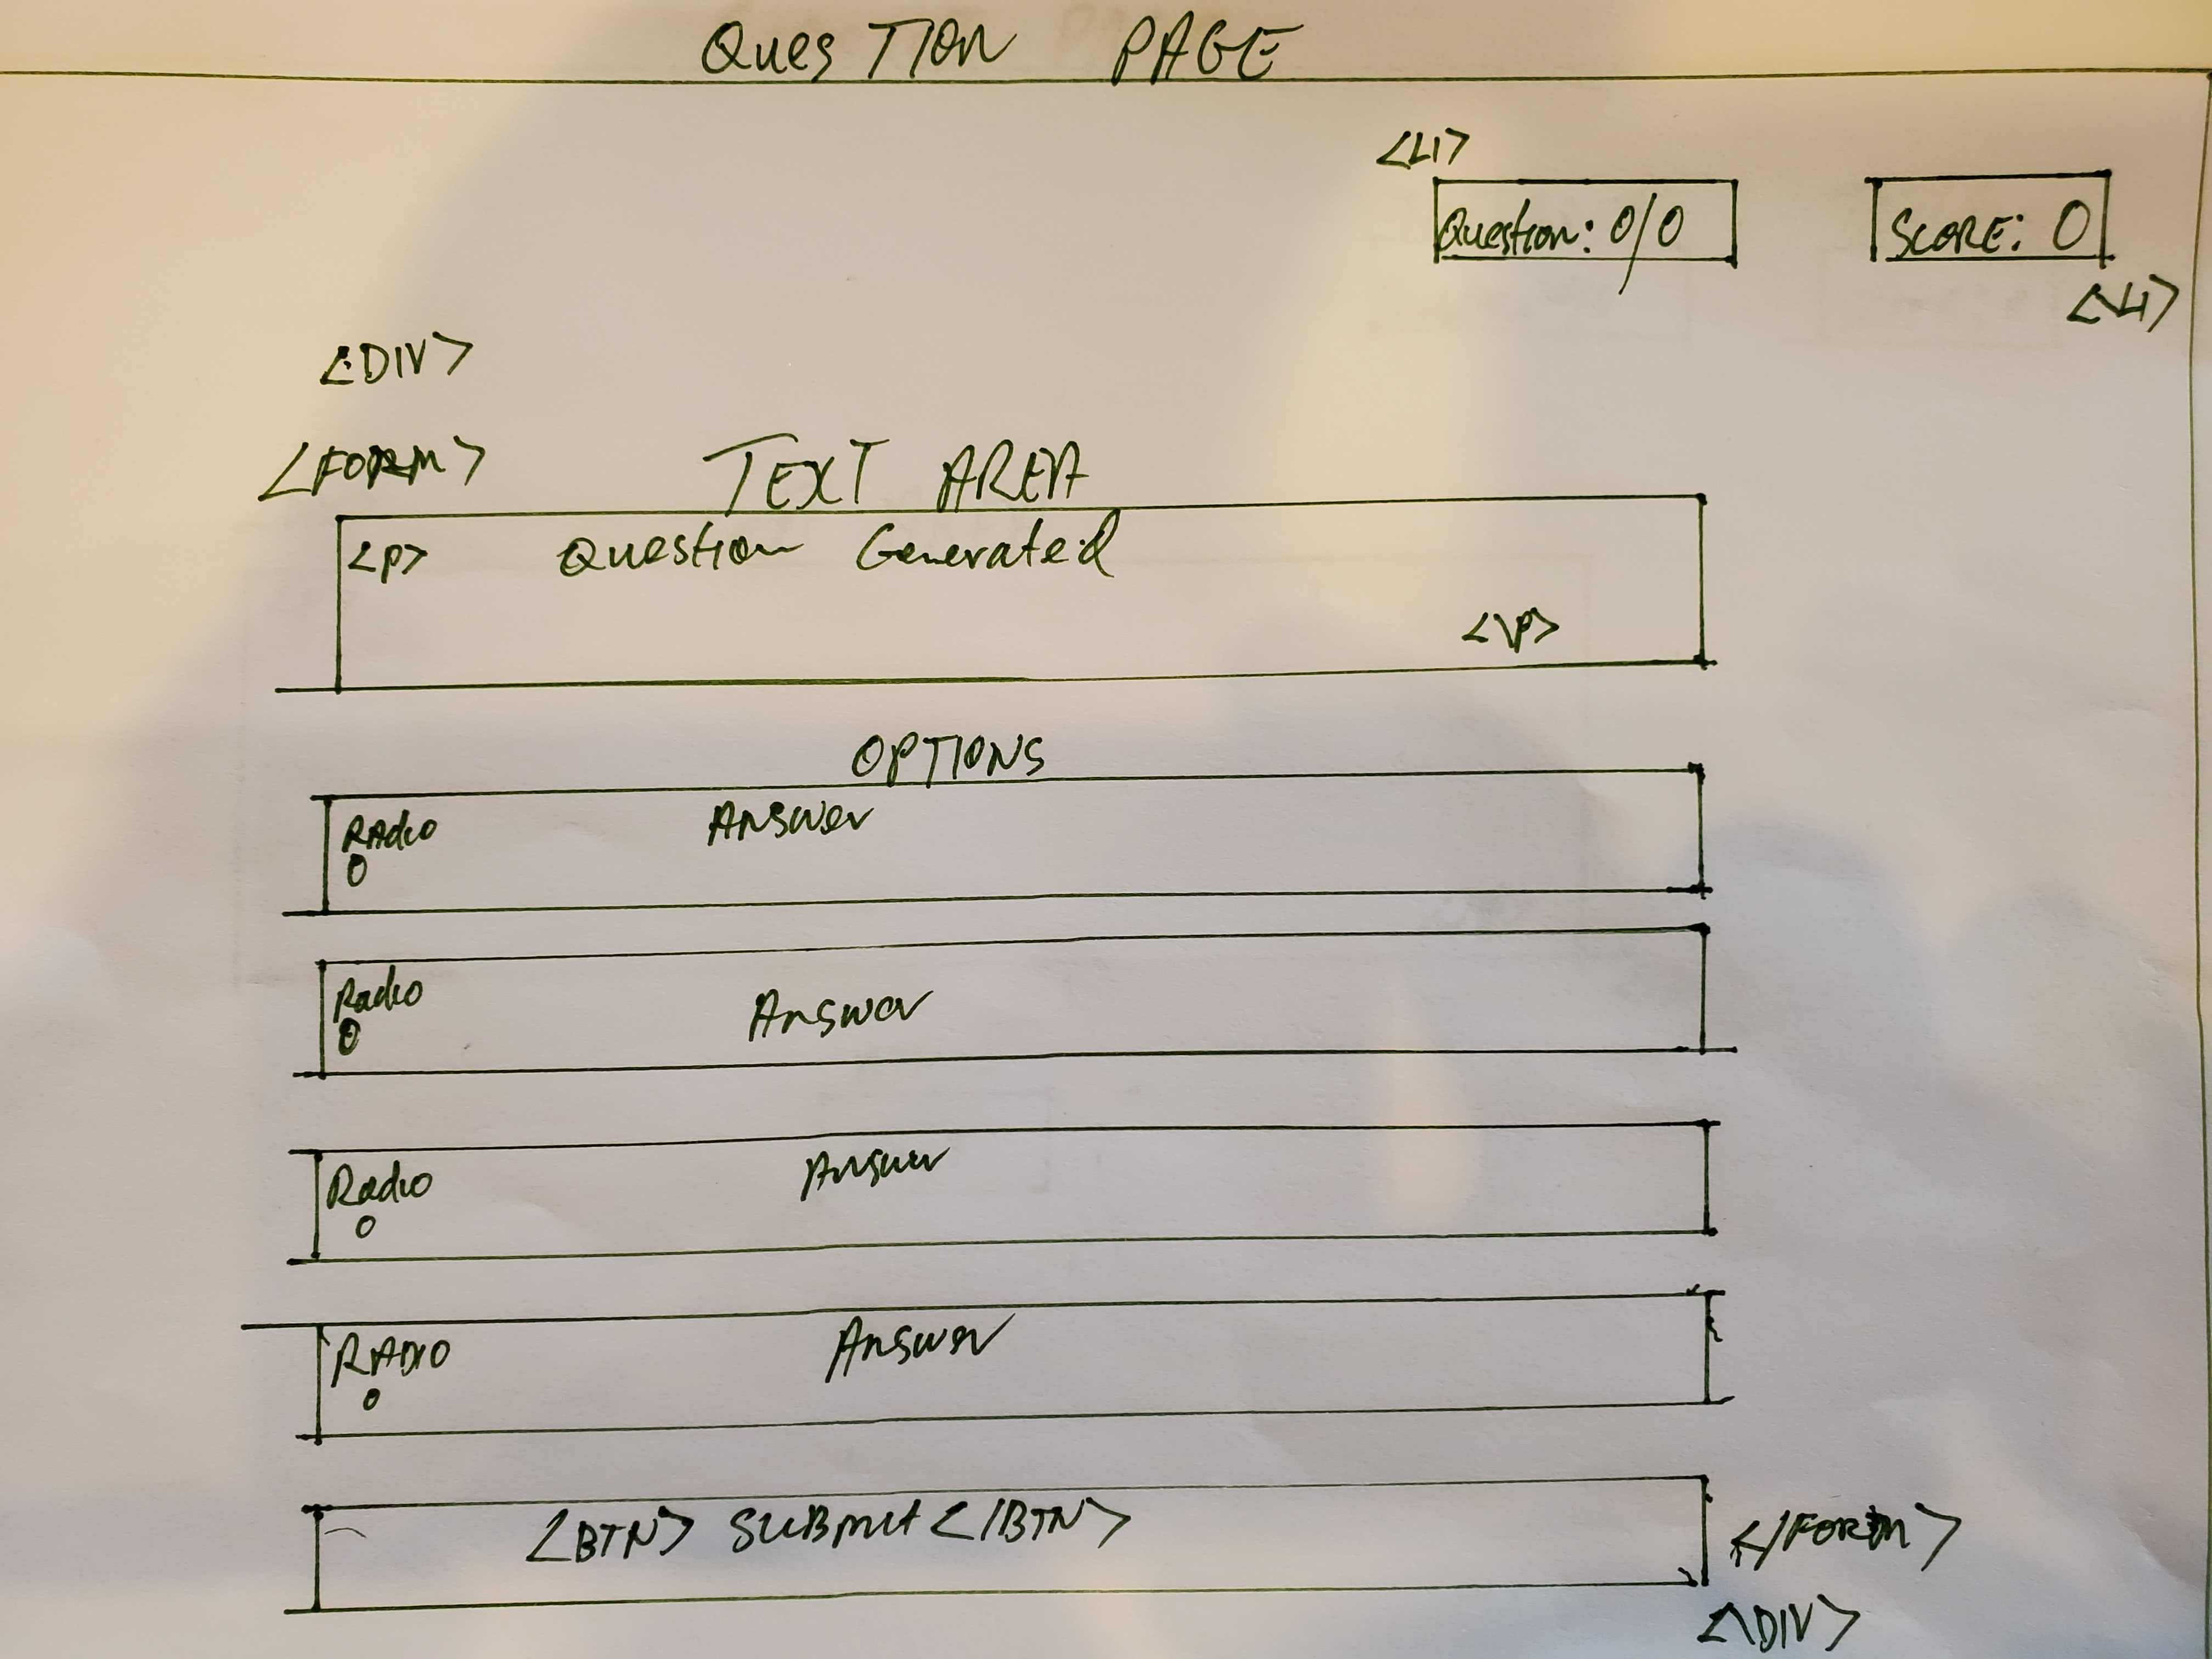 QuesTION PAGE
<LI>
Question: 0/0
SCORE: 0
<\LI>
<DIV>
<FORM>
TEXT AREA
<P> Question Generated
<\P>
OPTIONS
RAdio Answer
Radio Answer
Radio Answer
RADIO Answer
<BTN> SUBmit </BTN>
</FORM>
<\DIV>